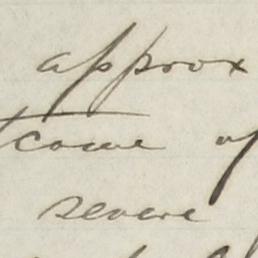 approx
come of
severe